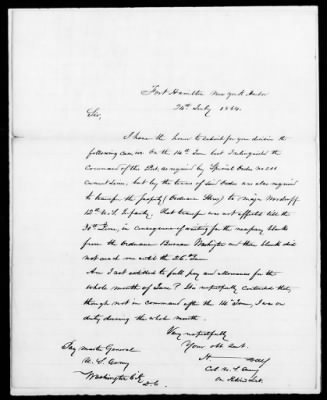 Fort Hamilton New York Harbor
24th July 1864.
Sir,
I have the honor to submit for your decision the
following case, viz. On the 14th June last I relinquished the
Command of this Post, as required by Special Order No 211
current series, but by the terms of said Order was also required
to transfer the property (Ordnance Stores) to Major
12th U.S. Infantry. That transfer was not effected till the
30th June, in consequence of waiting for the necessary blanks
from the Ordnance Bureau Washington and these blanks did
not reach me until the 26 June
Am I not entitled to full pay and allowances for the
whole month of June? It is respectfully contended that
though not in command after the 14 June, I was on
duty during the whole month.
Very respectfully
Your obt. servt.
Col U.S. Army
on Retired List
Pay master General
U. S. Army
Washington City
D.C.